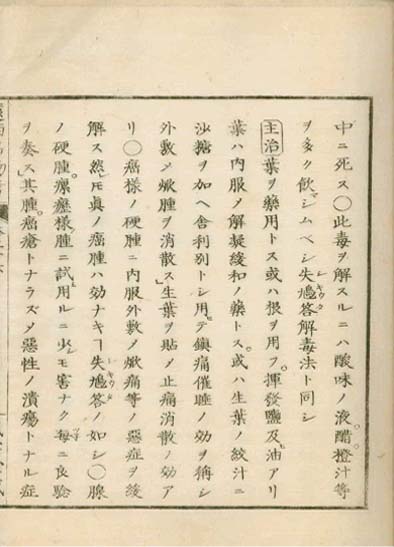 中ニ死ス〇此毒ヲ解スルニハ酸味ノ液。醋。橙汁等
ヲ多ク飲マシムベシ失鳩答解毒法ト同シ
主治葉ヲ藥用トス或ハ根ヲ用フ。揮發鹽及ヒ油アリ
葉ハ内服メ解凝緩和ノ藥トス。或ハ生葉ノ絞汁ニ
沙糖ヲ加ヘ舎利別トシ用ヒテ鎮痛催睡ノ効ヲ稱シ
外敷メ焮腫ヲ消散ス」生葉ヲ貼メ止痛消散ノ効ア
リ〇癌様ノ硬腫ニ内服外敷メ焮痛等ノ惡症ヲ緩
解ス然ㇾ𪜈眞ノ癌腫ハ効ナキヿ失鳩答ノ如シ〇腺
ノ硬腫。瘰癧様ノ腫ニ試用ルニ少シモ害ナク毎ニ良驗
ヲ奏ス」其腫。癌瘡トナラズメ惡性ノ潰瘍トナル症